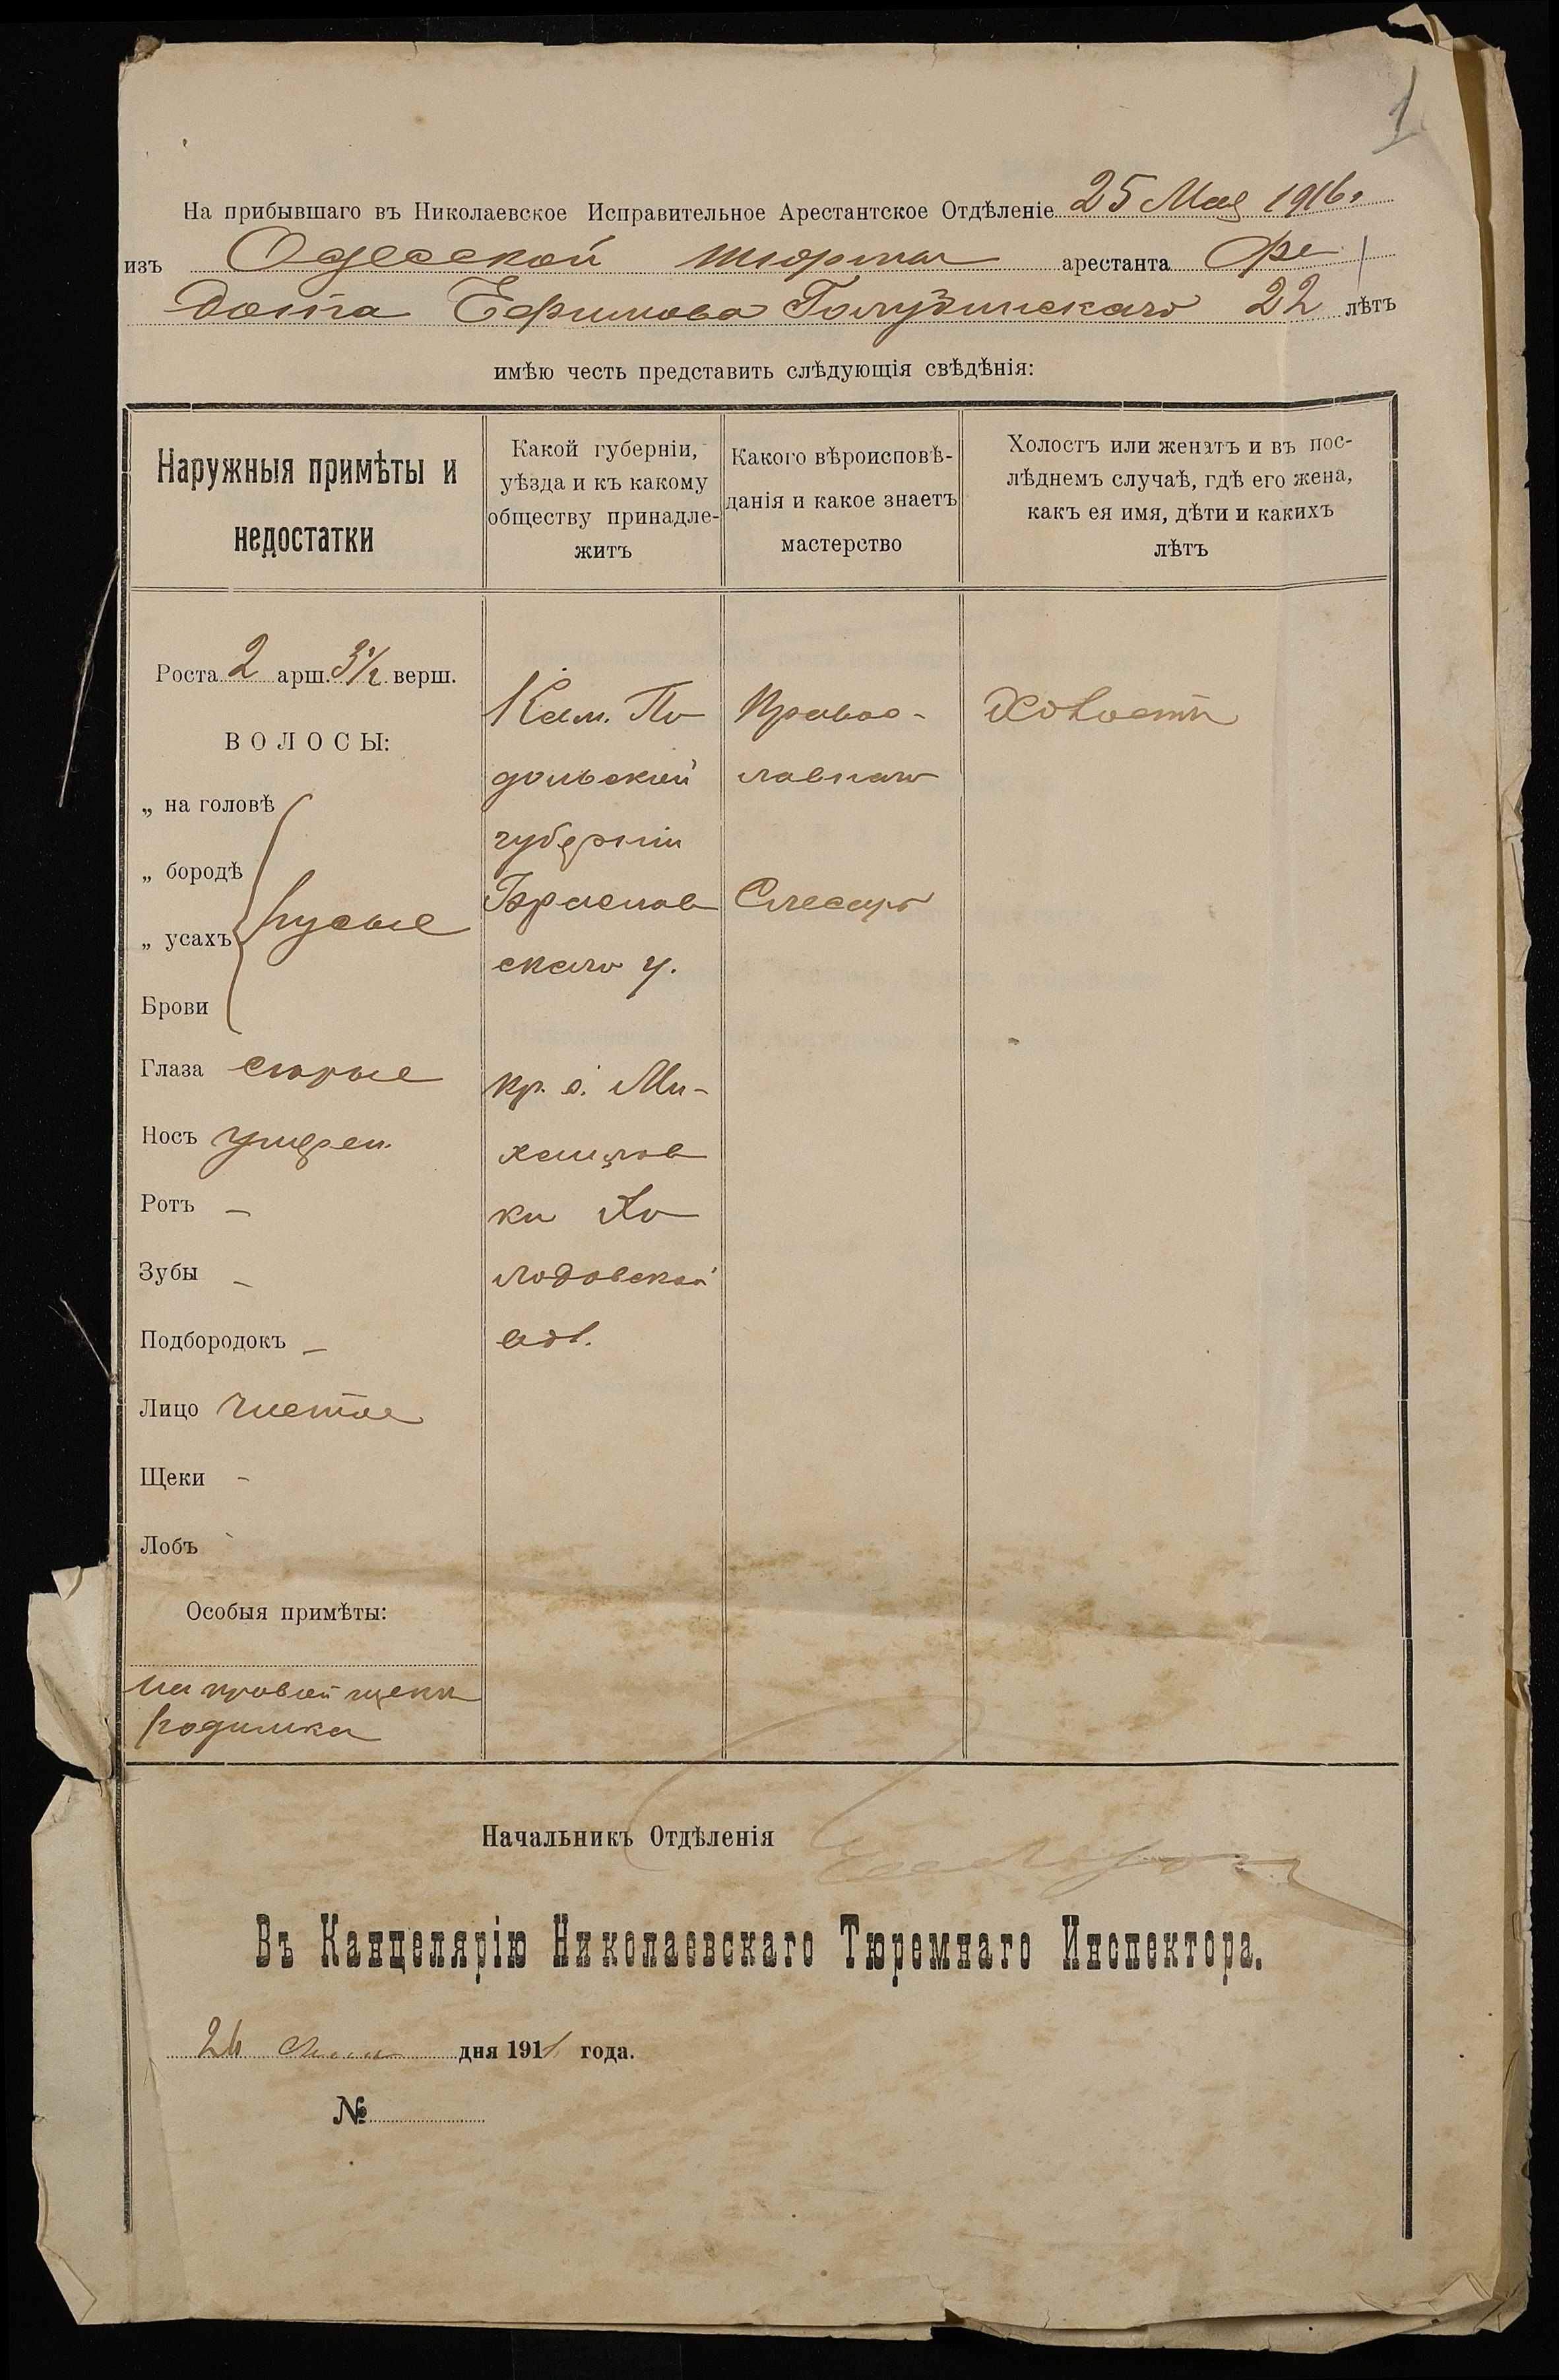 1
На прибывшаго въ Николаевское Исправительное Арестантское Отдѣленіе 25 Мая 1916г
изъ Одесской тюрмы арестанта Фе
дота Ефимова Голузинскаго 22 лѣтъ
имѣю честь представить слѣдующія свѣдѣнія:
Наружныя примѣты и
недостатки
Какой губерніи,
уѣзда и къ какому
обществу принадле-
житъ
Какого вѣроисповѣ-
данія и какое знаетъ
мастерство
Холостъ или женатъ и въ пос-
лѣднемъ случаѣ, гдѣ его жена,
какъ ея имя, дѣти и какихъ
лѣтъ
Роста 2 арш. 3½ верш.
ВОЛОСЫ:
„ на головѣ
„ бородѣ
„ усахъ русые
Брови
Глаза сѣрые
Носъ умѣрен.
Ротъ –
Зубы –
Подбородокъ –
Лицо чистое
Щеки -
Лобъ
Особыя примѣты:
на правой щеки
родимка
Кам. По
дольской
губерніи
Брацлав
скаго у.
кр. с. Ми-
хайлов
ки Хо
лодовской
вол.
Правос-
лавнаго
Слесарь
Холостъ
Начальникъ Отдѣленія
Въ Канцелярію Николаевскаго Тюремнаго Инспектора.
дня 191 года.
№